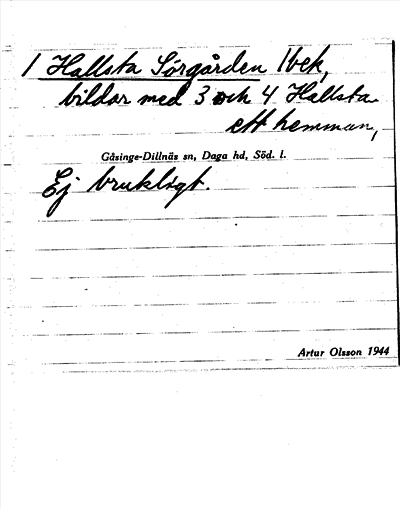 1 Hallsta Sörgården 1 bek,
bildar med 3 och 4 Hallsta
ett hemman,
Gåsinge-Dillnäs sn, Daga hd, Söd. l.
Ej brukligt.
Artur Olsson 1944